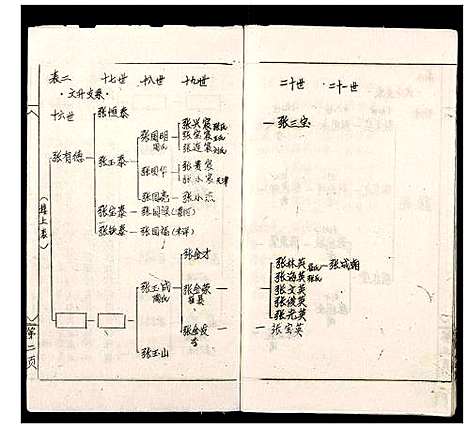 表二 十七世 十八世 十九世
·文升支系·
十六世
张恒泰
张有德
张玉泰
张国明
张兴家
张宝家
张连家
张国华
张贵家
张永家 天津
张国亮—张永杰
张宝泰—张国梁
张铁泰—张国福
(接上表)
张玉成
张金才
张金荣
张金发
张玉山
第二页
二十世 二十一世
张三宝
张林英 张成朝
张海英
张文英
张俊英
张光英
张宝英